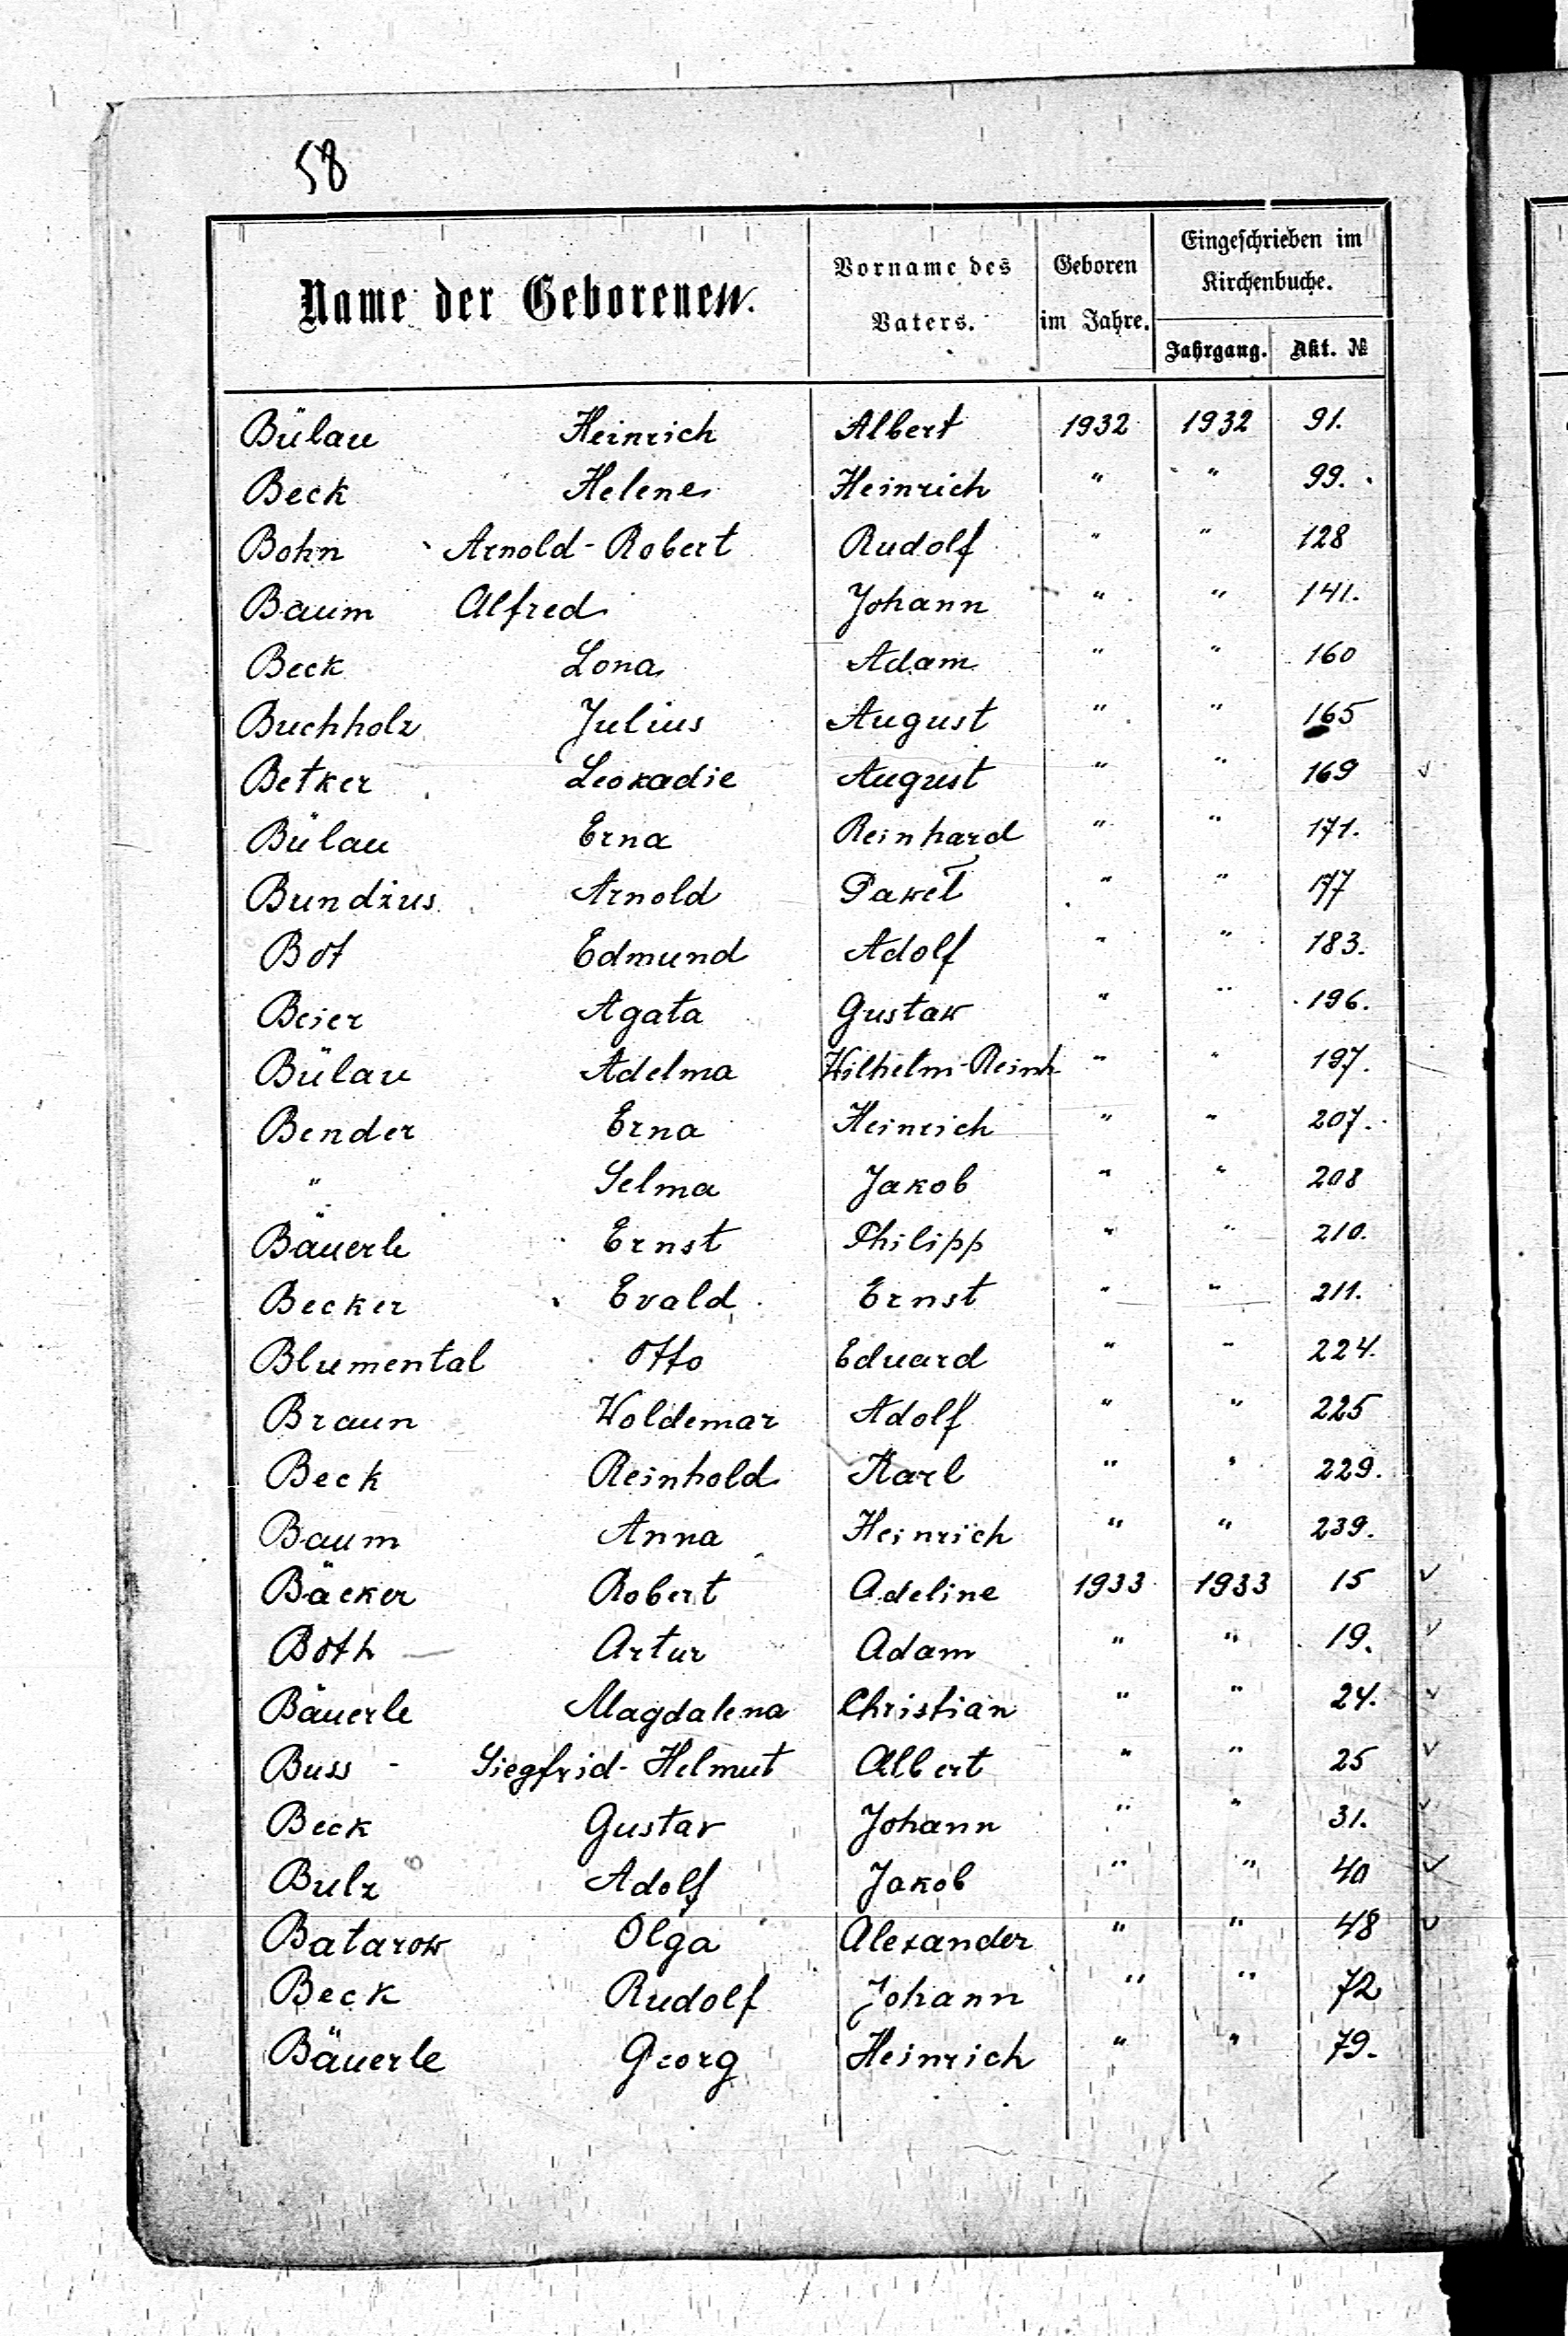 58
Name der Geborenen.
Vorname des Vaters.
Geboren im Jahre.
Eingeschrieben im Kirchenbuche.
Jahrgang. Akt. №
Bülau Heinrich Albert 1932 1932 91.
Beck Helene Heinrich " " 99.
Bohn Arnold-Robert Rudolf " " 128
Baum Alfred Johann " " 141.
Beck Lona Adam " " 160
Buchholz Julius August " " 165
Betker Leokadie August " " 169 ✓
Bülau Erna Reinhard " " 171.
Bundzus Arnold Paweł " " 177
Bot Edmund Adolf " " 183.
Beier Agata Gustaw " " 196.
Bülau Adelma Wilhelm-Reinh " " 197.
Bender Erna Heinrich " " 207.
" Selma Jakob " " 208
Bäuerle Ernst Philipp " " 210.
Becker Evald Ernst " " 211.
Blumental Otto Eduard " " 224.
Braun Woldemar Adolf " " 225
Beck Reinhold Karl " " 229.
Baum Anna Heinrich " " 239.
Bäcker Robert Adeline 1933 1933 15 ✓
Both Artur Adam " " 19. ✓
Bäuerle Magdalena Christian " " 24. ✓
Buss - Siegfrid-Helmut Albert " " 25 ✓
Beck Gustav Johann " " 31. ✓
Bulz Adolf Jakob " " 40 ✓
Batarow Olga Alexander " " 48 ✓
Beck Rudolf Johann " " 72
Bäuerle Georg Heinrich " " 79.